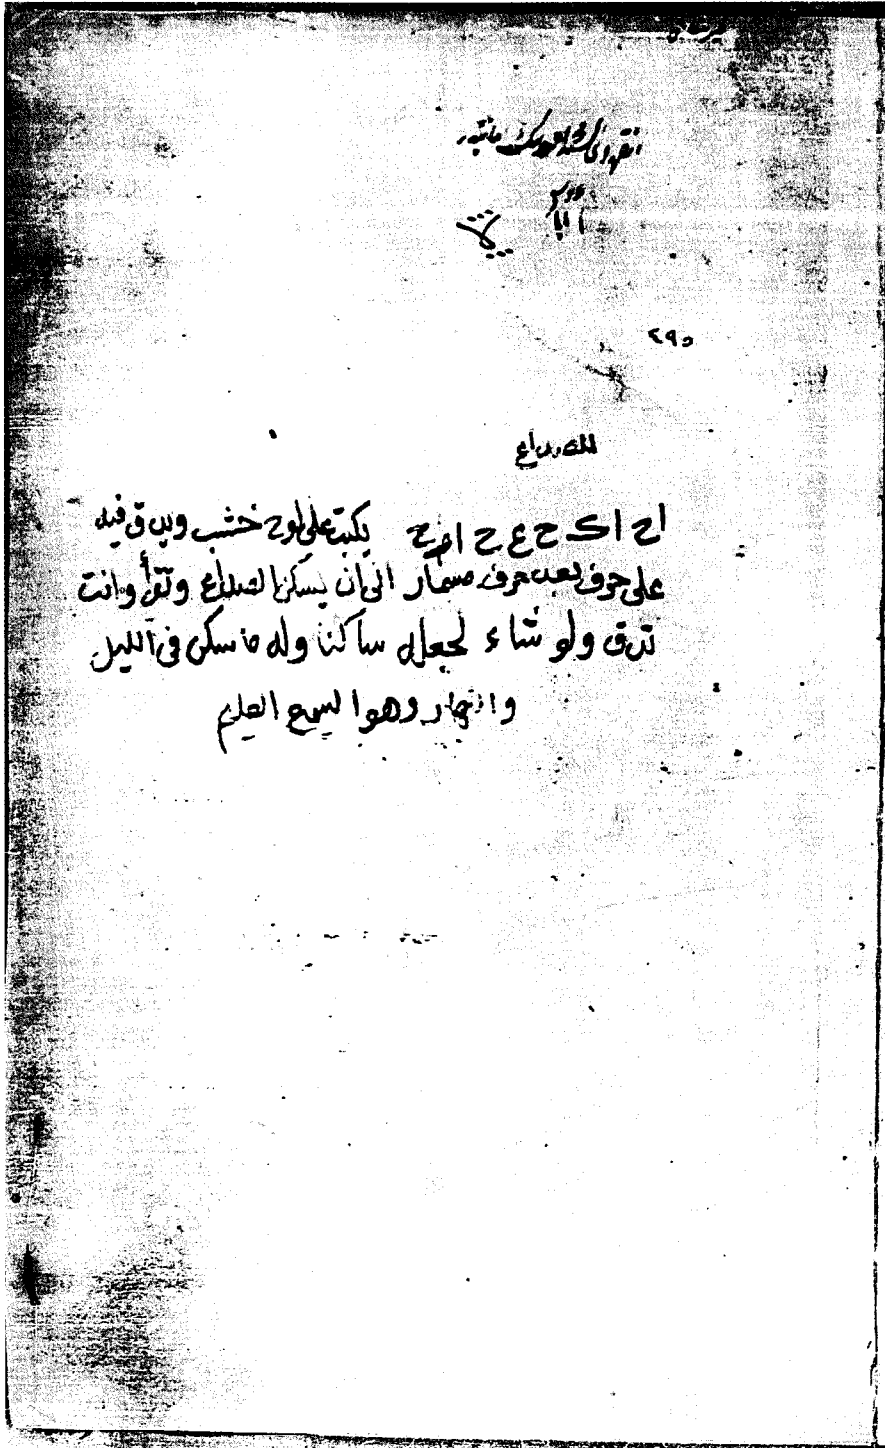 ٢٩٥
للصداع
اح اك ح ع ح ام ح يكتب على لوح خشب ويدق فيه
على حرف بعد حرف مسمار الى ان يسكن الصداع وتقرأ وانت
تدق ولو شاء لجعله ساكنا وله ما سكن في الليل
والنهار وهو السميع العليم